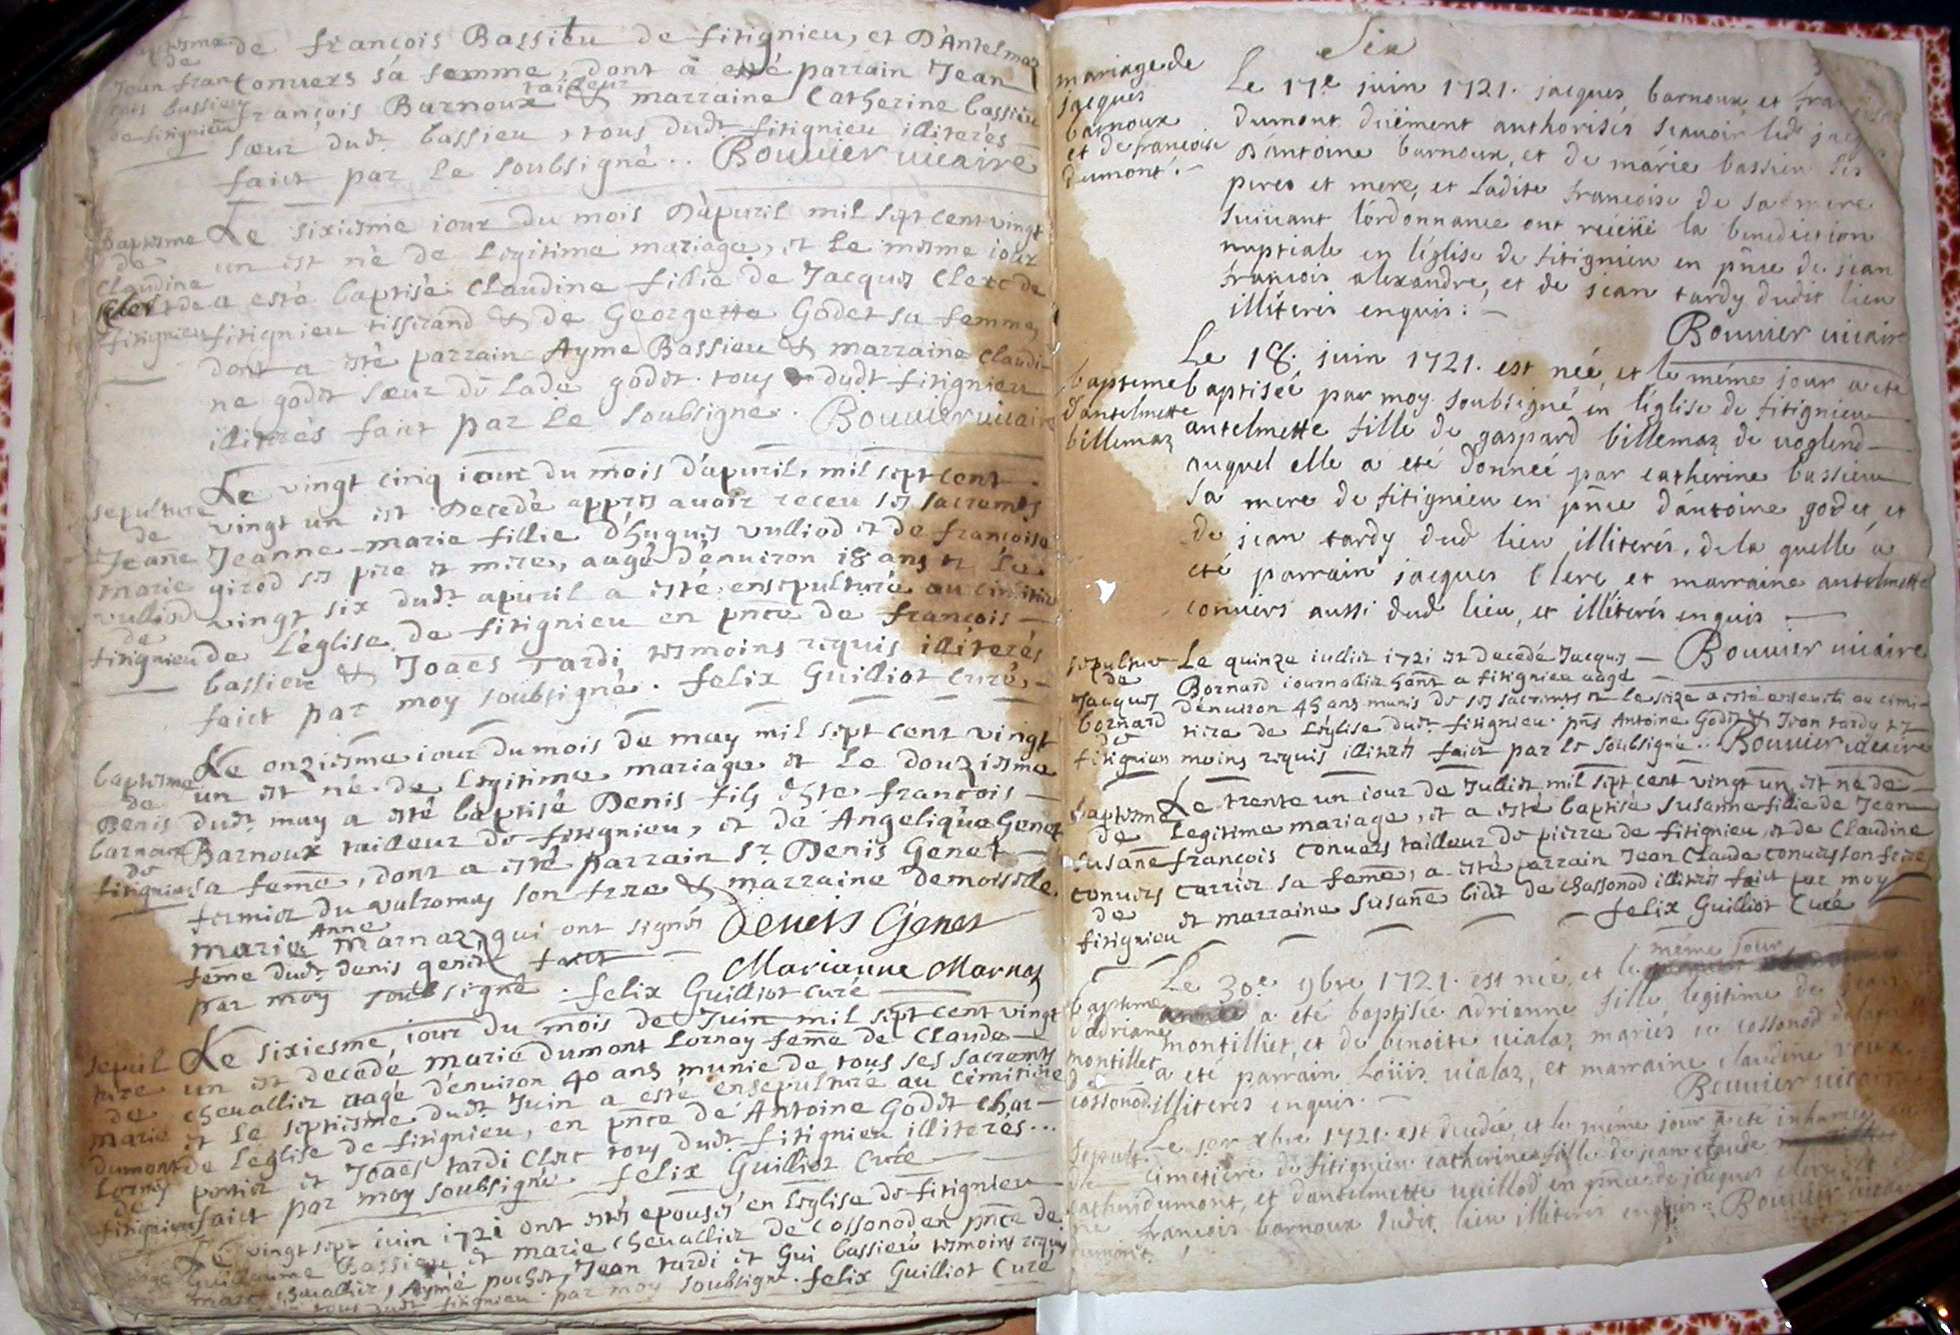 baptesme
de
Jean fran
cois bassieu
de fitignieu
de françois Bassieu de fitignieu, et D'Antelmaz
Convers sa femme, dont à esté parrain Jean
françois Barnoux tailleur & marraine Catherine bassieu
sœur dudt bassieu, tous dudt fitignieu illiterés
faict par le soubsigné .. Bouvier vicaire
baptesme
de
Claudine
Clerc de
fitignieu
Le sixiesme iour du mois D'apvril mil sept cent vingt
un est né de Legitime mariage, et le mesme iour
a esté baptisé Claudine fillie de Jacques Clerc de
fitignieu tisserand & de Georgette Godet sa femme,
dont a esté parrain Ayme Bassieu & marraine Claudi-
ne godet sœur de Lade godet. tous dudt fitignieu
illiterés faict par le soubsigné. Bouvier vicaire
sepulture
de
Jeane
marie
vulliod
de
fitignieu
Le vingt cinq iour du mois d'apvril, mil sept cent
vingt un est Decedé appres avoir receu ses sacremts
Jeanne-marie fillie d'huques vulliod et de françoise
girod ses pere et mere, aagé d'environ 18 ans et le
vingt six dudt apvril a esté ensepulturé au cimitiere
de L'église de fitignieu en pnce de françois
bassieu & Joaes Tardi tesmoins requis illiterés
faict par moy soubsigné. felix Guilliot Curé
baptesme
de
Denis
barnoux
de
fitignieu
Le onziesme iour du mois de may mil sept cent vingt
un est né de Legitime mariage et le douziesme
dudt may a esté baptisé Denis fils d'hte françois
Barnoux tailleur de fitignieu, et de Angelique Genet
sa feme, dont a esté parrain Sr Denis Genet
fermier du valromey son frere & marraine demoiselle
marie Anne marnaz, qui ont signés Denis Genet
feme dudt denis genet faict Marianne Marnaz
par moy soubsigné. felix Guilliot Curé
sepul
ture
de
marie
dumont
Lornay
de
fitignieu
Le sixiesme iour du mois de Juin mil sept cent vingt
un est decedé marie dumont Lornay feme de Claude
chevallier aagé d'environ 40 ans munie de tous ses sacremts
et le septiesme dudt Juin a esté ensepulturé au cimitiere
de L'église de fitignieu, en pnce de Antoine Godet char-
pentier et Joaes tardi Clerc tous dudt fitignieu illiterés...
faict par moy soubsigné felix Guilliot Curé
Le vingt sept iuin 1721 ont estés epousés en L'eglise de fitignieu
Guillaume Bassieu et marie chevallier de Cossonod en pnce de
marc chevallier, Aymé pochet, Jean tardi et Gui bassieu tesmoins requis
tous dudt fitignieu par moy soubsigné. felix Guilliot Curé
Six
mariage de
jacques
barnoux
et de françoise
dumont.
Le 17e juin 1721. jacques barnoux et françoise
dumont düement authorisés sçavoir ledt jacques
d'antoine barnoux, et de marie bassieu ses
peres et mere, et ladite françoise de sa mere
suivant l'ordonnance ont reçeü la benediction
nuptiale en l'église de fitignieu en pñce de jean
françois alexandre, et de jean tardy dudit lieu
illiterés enquis.
Bouvier vicaire
bapteme
d'antelmette
billemaz
Le 18. juin 1721. est née, et le méme jour a eté
baptisée par moy soubsigné en l'église de fitignieu
antelmette fille de gaspard billemaz de voglend
auquel elle a été donneé par catherine bassieu
sa mere de fitignieu en pñce d'antoine godet, et
de jean tardy dud lieu illiterés. de la quelle a
eté parrain jacques Clerc et marraine antelmette
convers aussi dud lieu, et illiterés enquis
Bouvier vicaire
sepulture
de
Jacques
bornard
de
fitignieu
Le quinze iullet 1721 est decedé Jacques
Bornard iournallier hant a fitignieu aagé
denviron 45 ans munis de ses sacremts et le seize a esté enseveli au cimi-
tiere de L'église dudt fitignieu. pns Antoine Godet & Jean tardy tes-
moins requis illiterés faict par le soubsigné .. Bouvier vicaire
baptesme
de
Susane
Convers
de
fitignieu
Le trente un iour de Jullet mil sept cent vingt un est né de
Legitime mariage, et a esté baptisé Susanne fillie de Jean
françois Convers tailleur de pierre de fitignieu, et de Claudine
Carrier sa feme, a esté parrain Jean Claude Convers son frere
et marraine Susane bidet de chassonod illiterés faict par moy
felix Guilliot Curé
bapteme
d'adriane
montillet
de
cossonod
Le 30e 9bre 1721. est née, et le méme jour
a été baptisée adrianne fille legitime de jean
montilliet, et de benoite vialaz mariés
a eté parrain Loüis vialaz, et marraine claudine
illiterés enquis. Bouvier vicaire
Sepult.
de
catheri
ne
dumont
Le 1er xbre 1721. est decedée, et le méme jour a eté inhumée au
cimetiere de fitignieu catherine fille de jean claude
dumont, et d'antelmette vuillod en pñce de jacques clerc, et
françois barnoux dudit lieu illiterés enquis. Bouvier vicaire